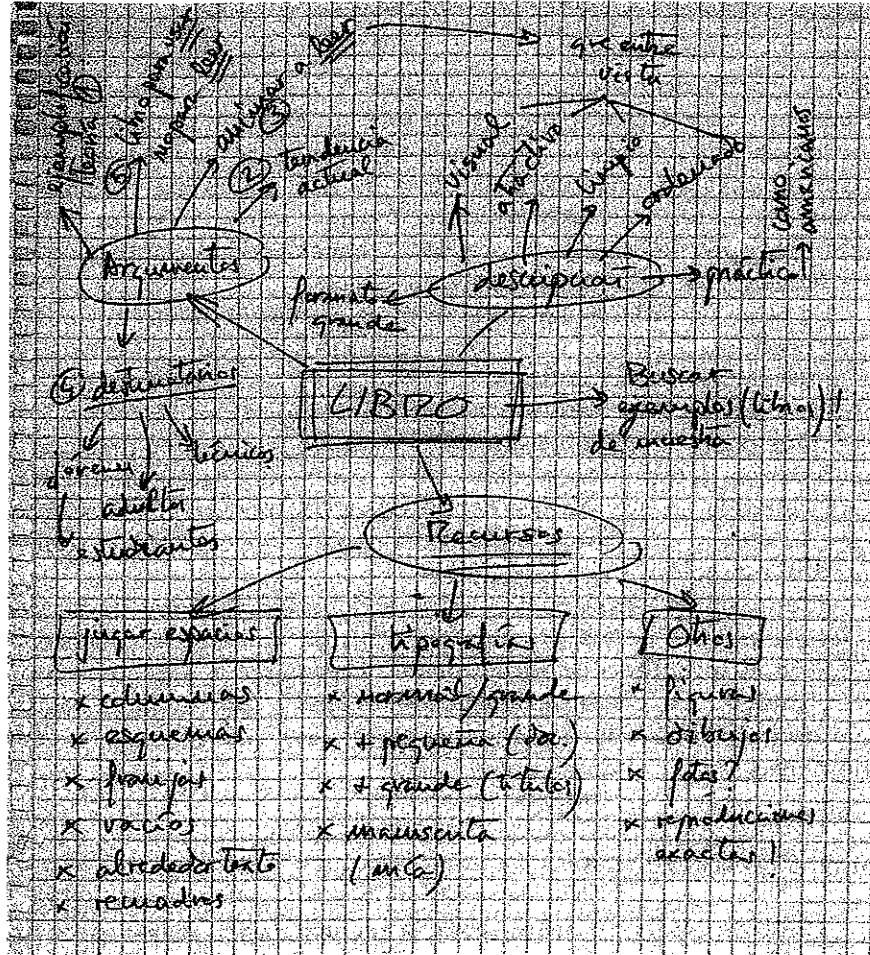 ejemplificación
teoría ①
⑤ libro para usar //
no para leer
animar a leer
③
② tendencia
actual
que entre
vista
visual
atractivo
limpio
ordenado
como
americanos
Argumentos
descripción
práctico!
formato
grande
④ destinatarios
jóvenes
adultos
técnicos
estudiantes
LIBRO
Buscar
ejemplos (libros)!
de muestra
Recursos
jugar espacios
× columnas
× esquemas
× franjas
× vacíos
× alrededor texto
× recuadros
tipografías
× normal/grande
× + pequeña (doc.)
× + grande (títulos)
× manuscrita
Otros
× figuras
× dibujos
× fotos?
× reproducciones
exactas!